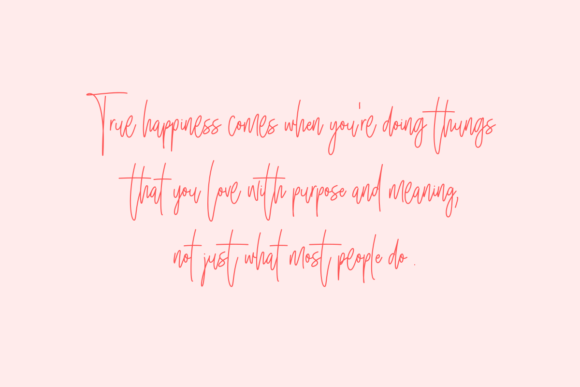 True happiness comes when you're doing things
that you love with purpose and meaning,
not just what most people do.